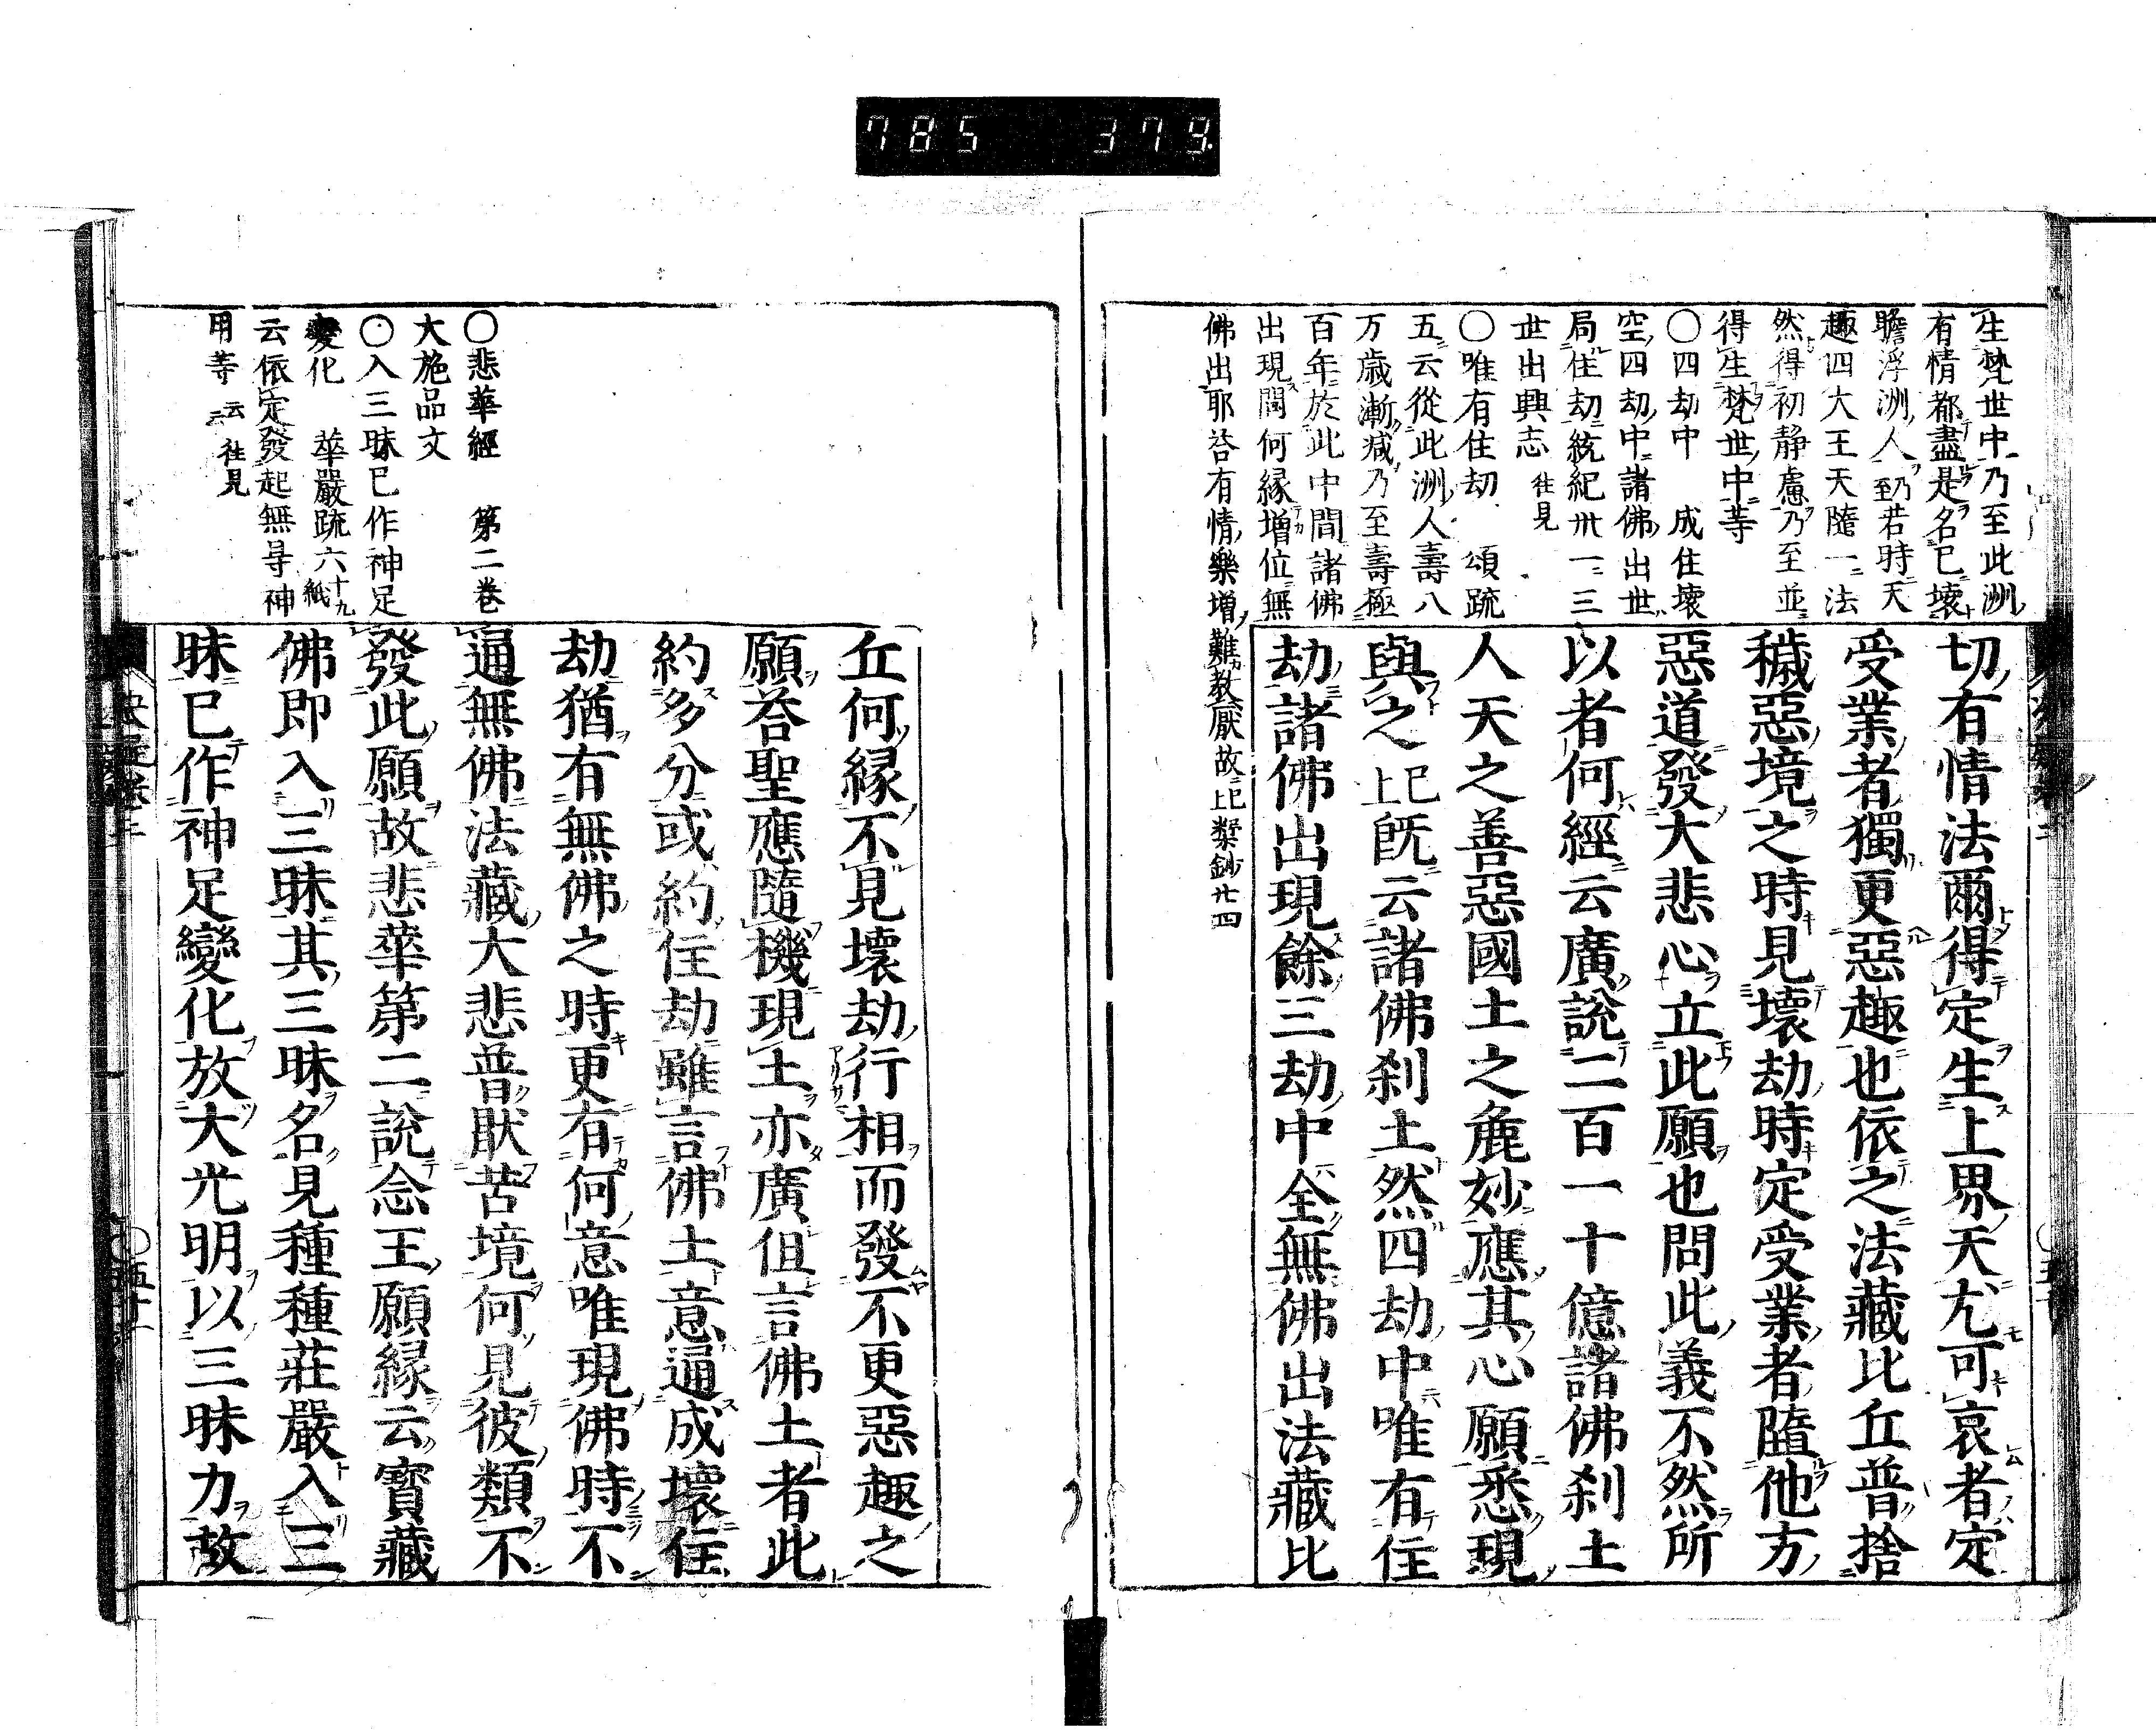 785 379
生梵世中乃至此洲
有情都盡是名已壞
瞻浮洲人乃至若時天
趣四大王天隨一法
然得初靜慮乃至並
得生梵世中等
〇四劫中 成住壞
空四劫中諸佛出世
局住劫統紀卅一三
世出興志 往見
〇唯有住劫 頌疏
五云從此洲人壽八
万歲漸減乃至壽極
百年於此中間諸佛
出現問何緣增位無
佛出耶答有情樂增難教厭故已上 糅鈔廿四
切有情法爾得定生上界天尤可哀者定
受業者獨更惡趣也依之法藏比丘普捨
穢惡境之時見壞劫時定受業者隨他方
惡道發大悲心立此願也問此義不然所
以者何經云廣說二百一十億諸佛刹土
人天之善惡國土之麁妙應其心願悉現
與之已上既云諸佛刹土然四劫中唯有住
劫諸佛出現餘三劫中全無佛出法藏比
丘何緣不見壞劫行相而發不更惡趣之
願荅聖應隨機現土亦廣但言佛土者此
約多分或約住劫雖言佛土意逼成壞住
劫猶有無佛之時更有何意唯現佛時不
逼無佛法藏大悲普猒苦境何見彼類不
發此願故悲華第二說念王願緣云寶藏
佛即入三昧其三昧名見種種莊嚴入三
昧已作神足變化放大光明以三昧力故
〇悲華經 第二卷
大施品文
〇入三昧已作神足
變化 華嚴疏六十九紙
云依定發起無㝵神
用等云云 往見